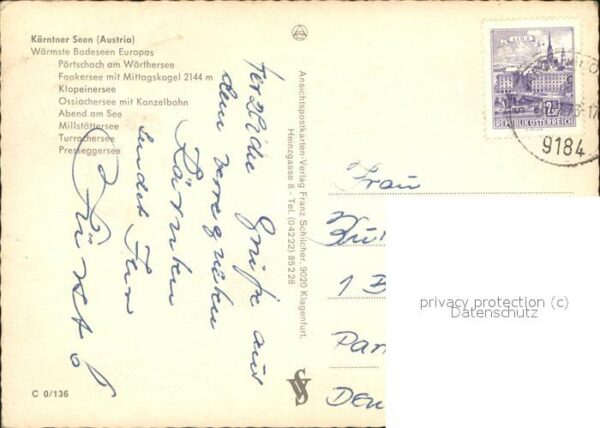 Kärntner Seen (Austria)
Wärmste Badeseen Europas
Pörtschach am Wörthersee
Faakersee mit Mittagskogel 2144 m
Klopeinersee
Ossiachersee mit Kanzelbahn
Abend am See
Millstättersee
Turrachersee
Presseggersee
Herzliche Grüße aus
dem verregneten
Kärnten
sendet Ihr
C 0/136
Ansichtspostkarten-Verlag Franz Schilcher, 9020 Klagenfurt,
Heinzgasse 8 - Tel. (04222) 85228
LINZ
REPUBLIK ÖSTERREICH
9184
Frau
1 B
Par
Den
privacy protection (c)
Datenschutz